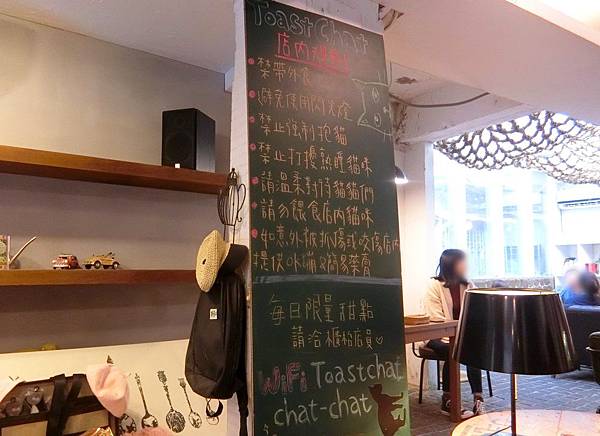 Toast Chat
店內規則
禁帶外食
避免使用閃光燈
禁止強制抱貓
禁止打擾熟睡貓咪
請溫柔對待貓貓們
請勿餵食店內貓咪
如意外被抓傷或咬傷店內
提供冰繃及簡易藥膏
每日限量甜點
請洽櫃檯店員♡
WiFi Toastchat
chat-chat